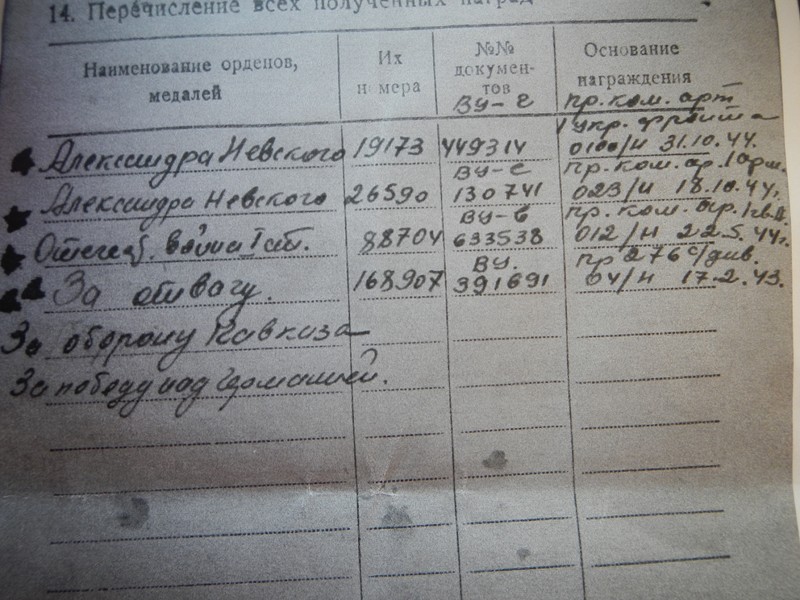 14. Перечисление всех полученных наград
Наименование орденов, медалей
Их номера
№№ документов
Основание награждения
ВУ-Е пр. ком. арт
1 укр. фронта
Александра Невского 19173 449314 0100/Н 31.10.44.
ВУ-Е пр. ком. ар.
Александра Невского 26590 130741 023/Н 18.10.44.
ВУ-Б пр. ком. ар.
Отечеств. война I ст. 88704 633538 012/Н 22.5.44г.
ВУ. пр 276 с/див.
За отвагу. 168907 391691 04/Н 17.2.43.
За оборону Кавказа
За победу над Германией.